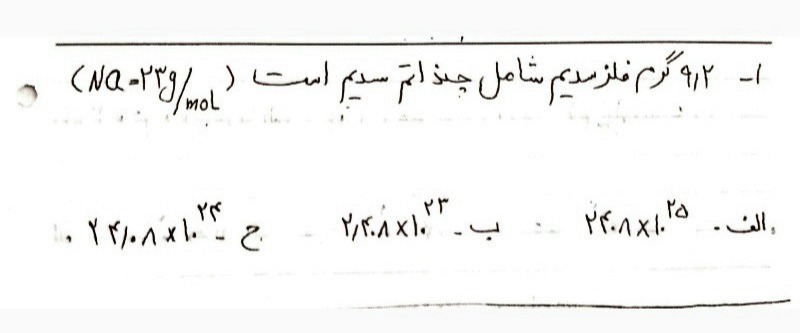 ۱- ۹٫۲ گرم فلز سدیم شامل چند اتم سدیم است (Na=۲۳g/mol)
الف- ۲۴۰۸×۱۰^۲۵ ب- ۲٫۴۰۸×۱۰^۲۳ ج- ۲۴٫۰۸×۱۰^۲۴